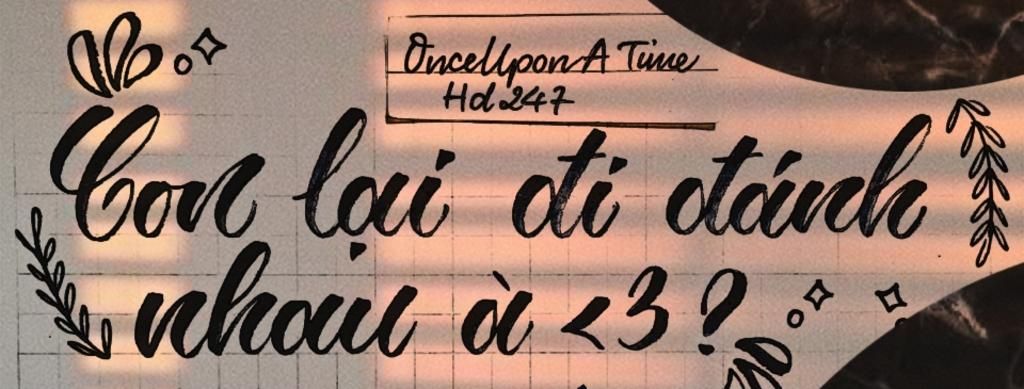 OnceUpon A Time
Hd 247
Con lại đi đánh
nhau à <3?